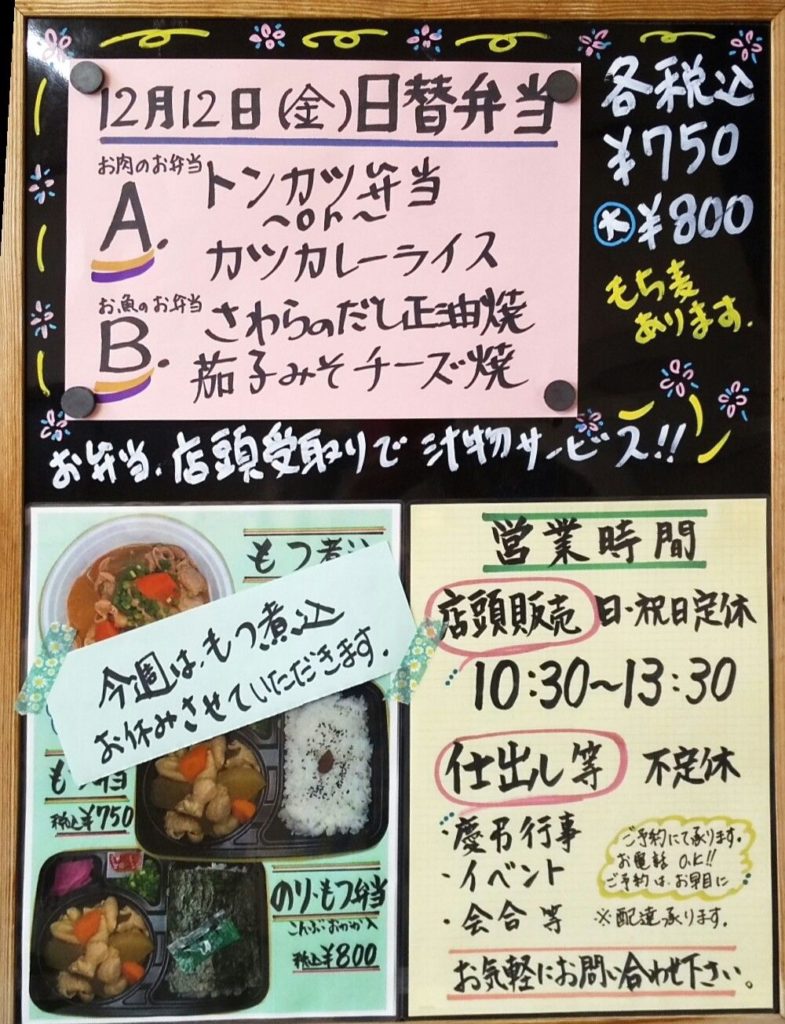 12月12日(金)日替弁当
お肉のお弁当
A.
トンカツ弁当
〜or〜
カツカレーライス
お魚のお弁当
B.
さわらのだし正油焼
茄子みそチーズ焼
各税込
¥750
大¥800
もち麦
あります.
お弁当、店頭受取りで汁物サービス!!
もつ煮込
今週は、もつ煮込
お休みさせていただきます.
税込¥750
のり・もつ弁当
こんぶおかか入
税込¥800
営業時間
店頭販売 日・祝日定休
10:30〜13:30
仕出し等 不定休
・慶弔行事
・イベント
・会合等
ご予約にて承ります.
お電話OK!!
ご予約は、お早目に
※配達承ります.
お気軽にお問い合わせ下さい。